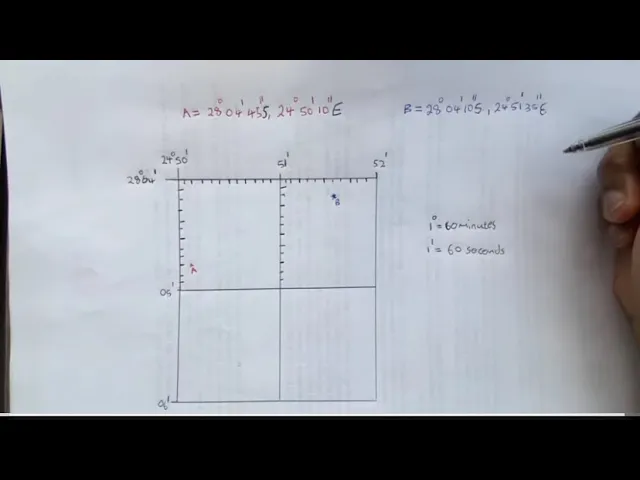 A = 28°04'45"S, 24°50'10"E
B = 28°04'10"S, 24°51'35"E
24°50' 51' 52'
28°04'
B
1° = 60 minutes
1' = 60 seconds
A
05'
06'